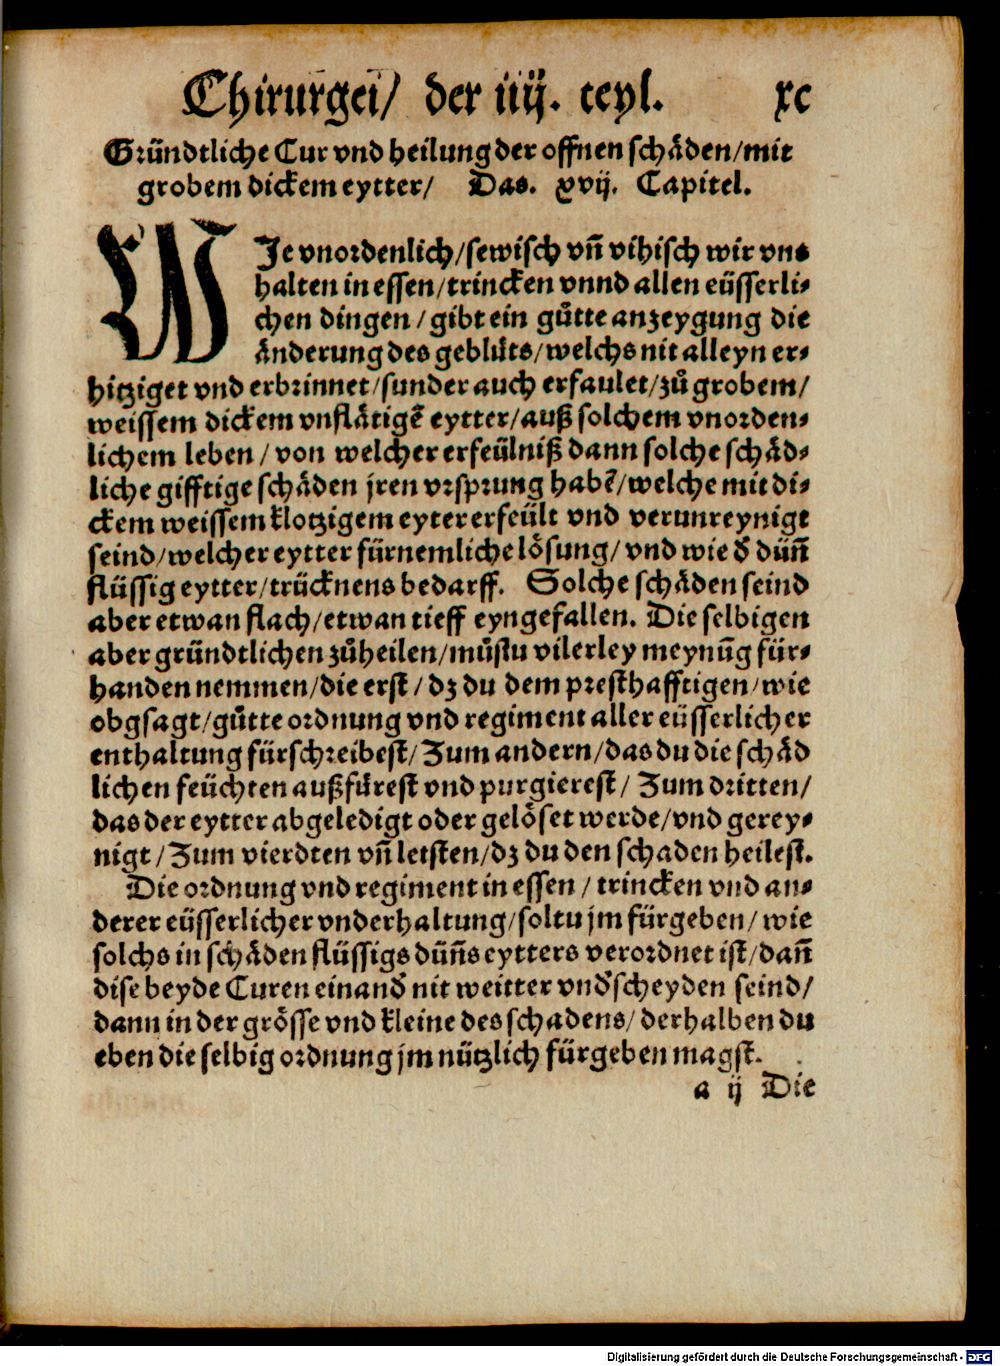 Chirurgei/ der iiij. teyl. xc
Gründtliche Cur vnd heilung der offnen schäden/mit
grobem dickem eytter/ Das. xvij. Capitel.
WJe vnordenlich/sewisch vñ vihisch wir vns
halten in essen/trincken vnnd allen eüsserli⸗
chen dingen/gibt ein gůtte anzeygung die
änderung des geblüts/welchs nit alleyn er⸗
hitziget vnd erbrinnet/sunder auch erfaulet/zů grobem/
weissem dickem vnflätigẽ eytter/auß solchem vnorden⸗
lichem leben/von welcher erfeülniß dann solche schäd⸗
liche gifftige schäden jren vrsprung habẽ/welche mit di⸗
ckem weissem klotzigem eyter erfeült vnd verunreynigt
seind/welcher eytter fürnemliche lösung/vnd wie d̕ düñ
flüssig eytter/trücknens bedarff. Solche schäden seind
aber etwan flach/etwan tieff eyngefallen. Die selbigen
aber gründtlichen zůheilen/můstu vilerley meynũg für⸗
handen nemmen/die erst/dz du dem presthafftigen/wie
obgsagt/gůtte ordnung vnd regiment aller eüsserlicher
enthaltung fürschreibest/Zum andern/das du die schäd
lichen feüchten außfürest vnd purgierest/Zum dritten/
das der eytter abgeledigt oder gelöset werde/vnd gerey⸗
nigt/Zum vierdten vñ letsten/dz du den schaden heilest.
Die ordnung vnd regiment in essen/trincken vnd an⸗
derer eüsserlicher vnderhaltung/soltu jm fürgeben/wie
solchs in schäden flüssigs düñs eytters verordnet ist/dañ
dise beyde Curen einand̕ nit weitter vnd̕scheyden seind/
dann in der grösse vnd kleine des schadens/derhalben du
eben die selbig ordnung jm nützlich fürgeben magst.
a ij Die
Digitalisierung gefördert durch die Deutsche Forschungsgemeinschaft - DFG